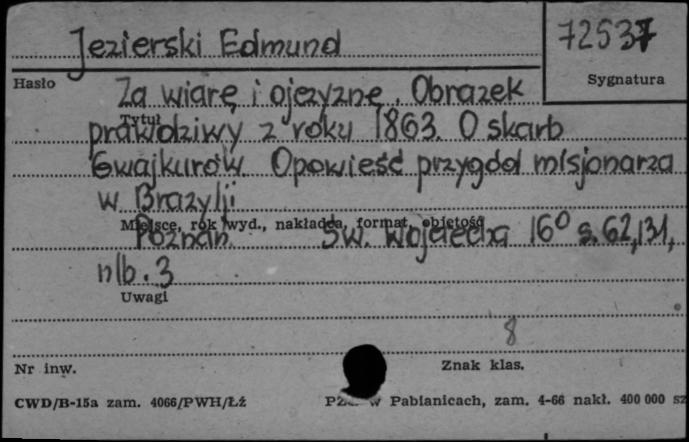 Jezierski Edmund
72537
Hasło
Sygnatura
Za wiarę i ojczyznę. Obrazek
Tytuł
prawdziwy z roku 1863. O skarb
Gwajkurów. Opowieść przygód misjonarza
w Brazylji
Miejsce, rok wyd., nakładca, format, objętość
Poznań Św. Wojciecha 16° s. 62, 131,
nlb. 3
Uwagi
8
Nr inw.
Znak klas.
CWD/B-15a zam. 4066/PWH/Łź
w Pabianicach, zam. 4-66 nakł. 400 000 sz